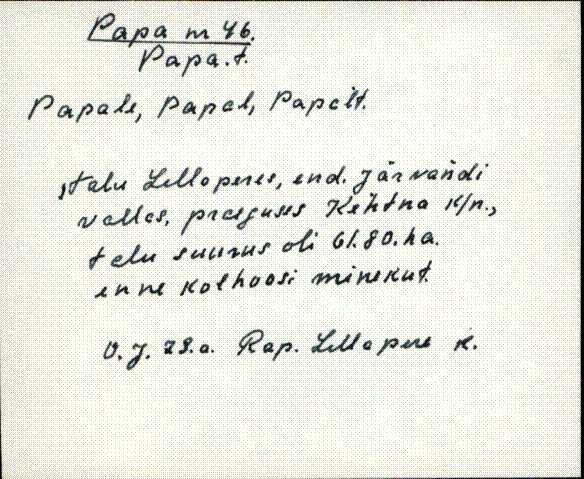 Papa m 46.
Papa.t.
Papale, Papal, Papalt.
talu Lelloperes, end. Järvandi
vallas, praeguses Kehtna k/n.,
talu suurus oli 61.80.ha.
enne kolhoosi minekut.
O. J. 79.a. Rap. Lellapere k.